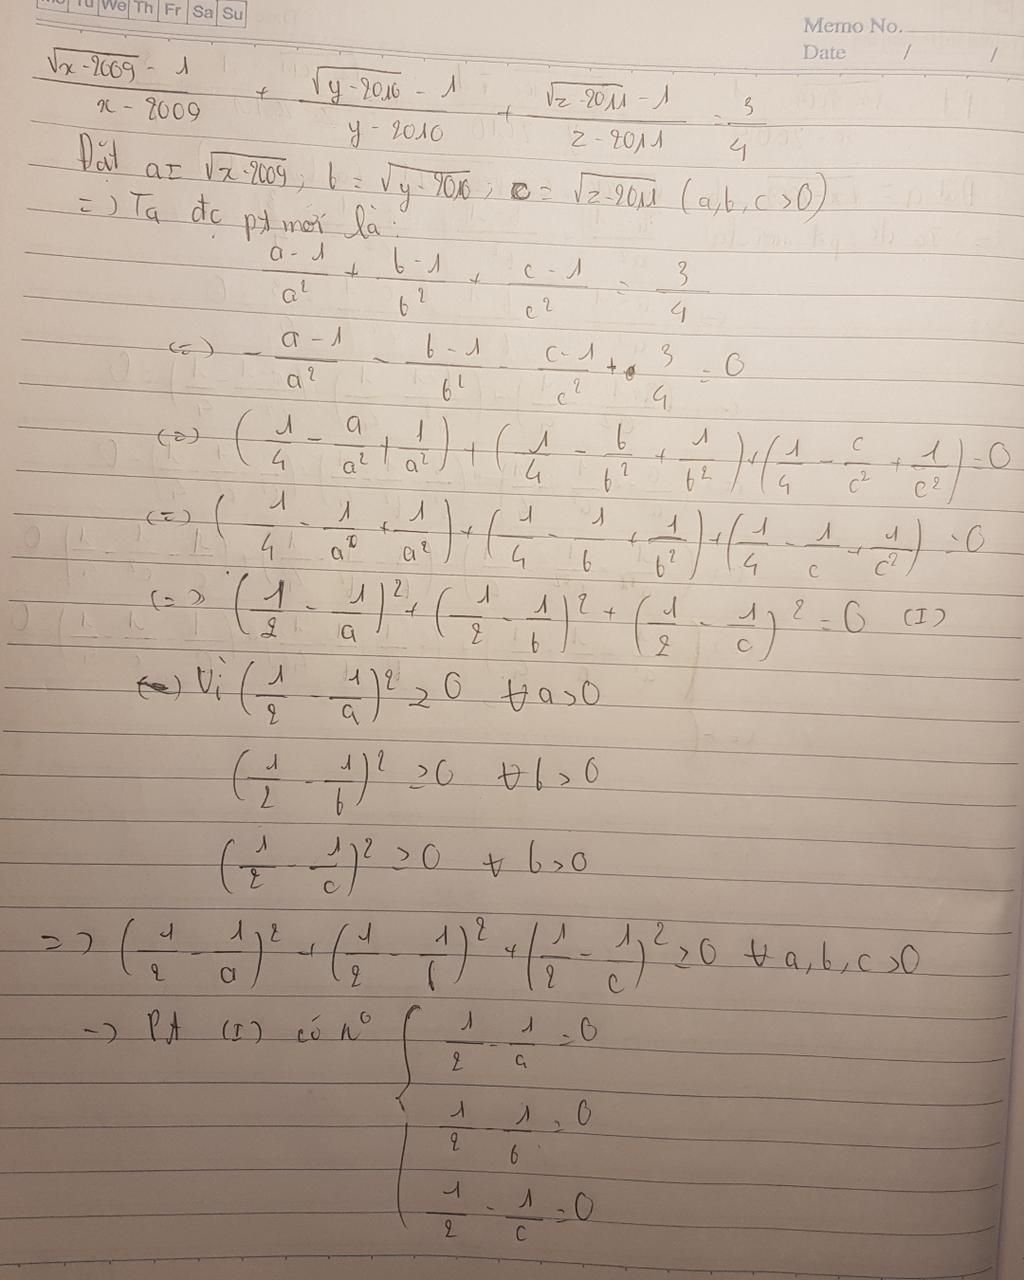 Mo Tu We Th Fr Sa Su
Memo No.
Date / /
(√(x-2009) - 1)/(x - 2009) + (√(y-2010) - 1)/(y - 2010) + (√(z-2011) - 1)/(z - 2011) = 3/4
Đặt a = √(x-2009); b = √(y-2010); c = √(z-2011) (a,b,c >0)
=) Ta đc pt mới là:
(a-1)/a² + (b-1)/b² + (c-1)/c² = 3/4
(=) - (a-1)/a² - (b-1)/b² - (c-1)/c² + 3/4 = 0
(=) (1/4 - a/a² + 1/a²) + (1/4 - b/b² + 1/b²) + (1/4 - c/c² + 1/c²) = 0
(=) (1/4 - 1/a + 1/a²) + (1/4 - 1/b + 1/b²) + (1/4 - 1/c + 1/c²) = 0
(=) (1/2 - 1/a)² + (1/2 - 1/b)² + (1/2 - 1/c)² = 0 (I)
Vì (1/2 - 1/a)² ≥ 0 ∀ a>0
(1/2 - 1/b)² ≥ 0 ∀ b > 0
(1/2 - 1/c)² ≥ 0 ∀ b > 0
=) (1/2 - 1/a)² + (1/2 - 1/b)² + (1/2 - 1/c)² ≥ 0 ∀ a, b, c > 0
-) Pt (I) có n⁰ { 1/2 - 1/a = 0
1/2 - 1/b = 0
1/2 - 1/c = 0